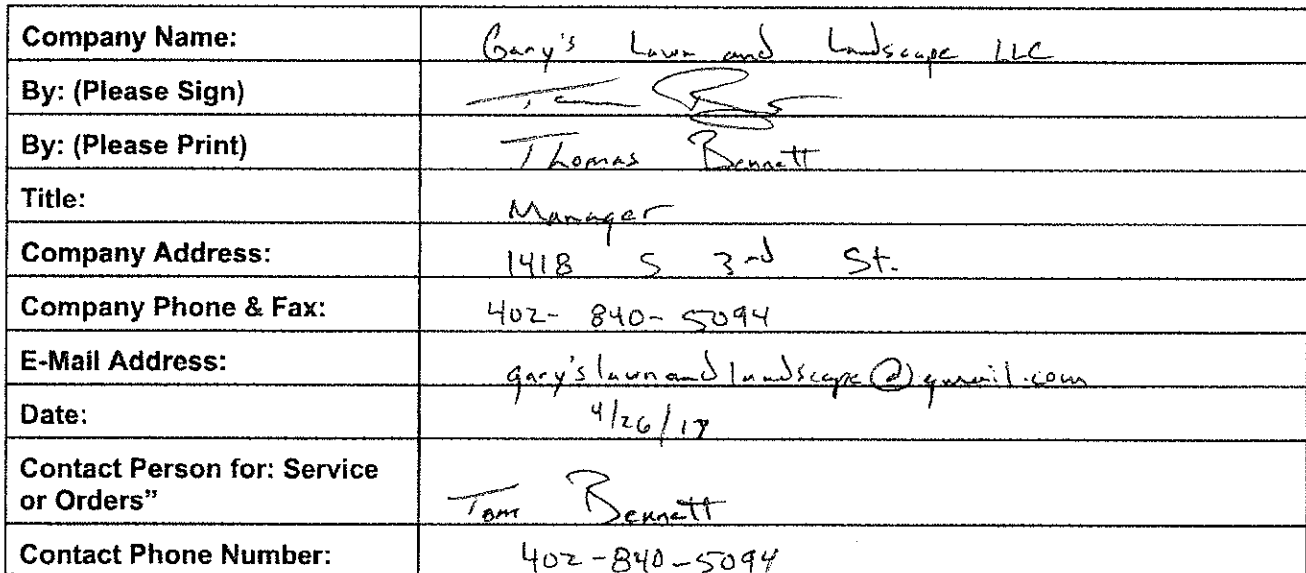 Company Name: Gary's Lawn and Landscape LLC
By: (Please Sign)
By: (Please Print) Thomas Bennett
Title: Manager
Company Address: 1418 S 3rd St.
Company Phone & Fax: 402-840-5094
E-Mail Address: gary'slawnandlandscape@gmail.com
Date: 4/26/17
Contact Person for: Service
or Orders” Tom Bennett
Contact Phone Number: 402-840-5094